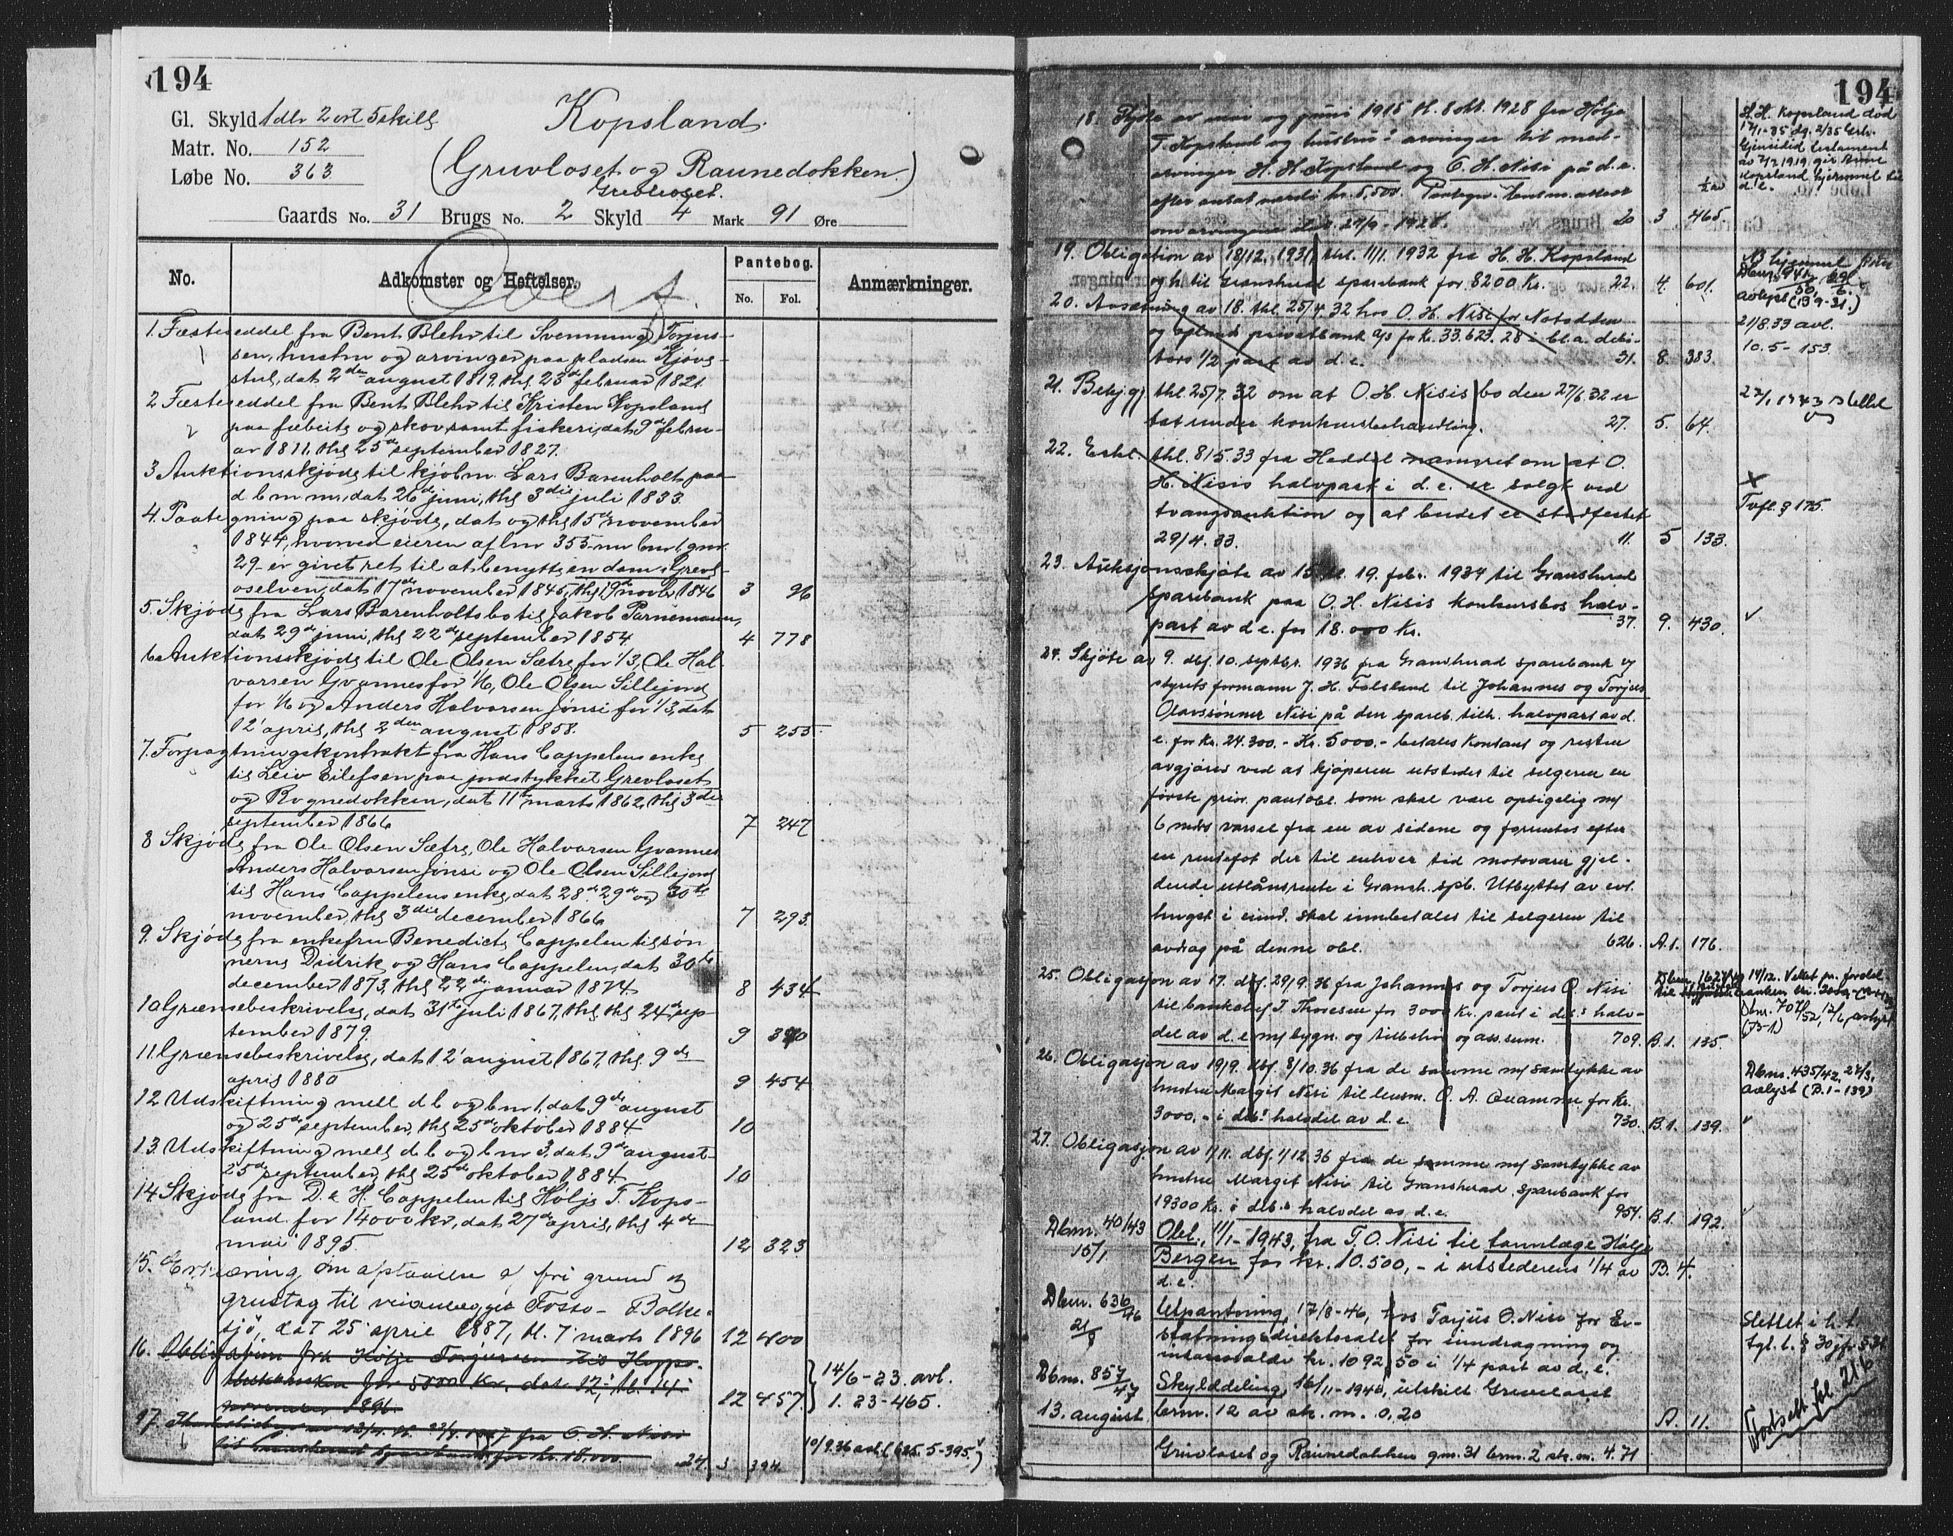 194
Gl. Skyld 1 dlr 2 ort 5 skill
Matr. No. 152
Løbe No. 363
Kopsland.
(Gruvloset og Raunedokken)
Grevloset.
Gaards No. 31 Brugs No. 2 Skyld 4 Mark 91 Øre
No.
Adkomster og Heftelser.
Pantebog.
No. Fol.
Anmærkninger.
Overf.
1. Fæsteseddel fra Bent Blehr til Svennung Torjus-
sen, hustru og arvinger paa pladsen
stul, dat 2den august 1819, thl 23de februar 1821
2 Fæsteseddel fra Bent Blehr til Kristen Kopsland
paa fæbeite og skov samt fiskeri, dat 9de febru-
ar 1811, thl 25de september 1827.
3 Auktionsskjøde til kjøbm. Lars Barenholt paa
d b m m, dat 26de juni, thl 3die juli 1833.
4. Paategning paa skjøde, dat og thl 15de november
1844, hvorved eieren af lnr 355 nu bnr 1 gnr.
29 er givet ret til at benytte en dam i Grevl-
oselven, dat 17de november 1845, thl 19de novbr 1846 3 96
5. Skjøde fra Lars Barenholts bo til Jakob Parnemann,
dat 29de juni, thl 22de september 1854 4 778
6 Auktionsskjøde til Ole Olsen Sætre for 1/3, Ole Hal-
varsen Gvannes for 1/6, Ole Olsen Sillejord
for 1/6 og Anders Halvorsen Jønsi for 1/3, dat
12 april, thl 2den august 1858. 5 255
7. Forpagtningskontrakt fra Hans Cappelens enke
til Leiv Eilefsen paa jordstykket Grevloset
og Rognedokken, dat 11te marts 1862, thl 3die
september 1866 7 247
8 Skjøde fra Ole Olsen Sætre, Ole Halvorsen Gvannes
Anders Halvorsen Jønsi og Ole Olsen Sillejord
til Hans Cappelens enke, dat 28de 29de og 30te
november, thl 3die december 1866 7 293
9. Skjøde fra enkefru Benedicte Cappelen til søn
nerne Didrik og Hans Cappelen, dat 30te
december 1873, thl 22de januar 1874 8 434
10 Grænsebeskrivelse, dat 31te juli 1867, thl thl 24de sep-
tember 1879. 9 390
11. Grænsebeskrivelse, dat 12 august 1867, thl 9de
april 1880 9 454
12 Udskiftning mell d b og bnr 1, dat 9de august
og 25de september, thl 25de oktober 1884 10
13. Udskiftning mell d b og bnr 3, dat 9de august
25de september, thl 25de oktober 1884 10
14 Skjøde fra D. & H. Cappelen til Hølje T. Kops-
land for 14000 kr, dat 27de april, thl 4de
mai 1895. 12 323
15. Erklæring om afstaaelse af fri grund og
grustag til veianlegget Fosso - Bolke-
sjø, dat 25 april 1887, tl. 7 marts 1896 12 400
16. Obligation fra Hølje Torjussen til Hypo-
thekbanken for 5000 Kr. dat 12, tl. 14
november 1896 12 457.
14/6-23. avl.
1. 23-465.
17. av 12/4 tl. 27/4 1927 fra O. H. Nisi
til Gransherad Sparebank for kr. 18.000 24. 3 394.
10/9.36 avl. (5-395.)
194
18. Skjøte av mai og juni 1915 tl. 8 okt. 1928 fra Hølje
T. Kopsland og hustrus arvinger til med-
arvinger H. H. Kopsland og O. H. Nisi på d. e.
efter ansat verdi kr. 5,500. Paategn. lensm. attest
om arvingene dat. 27/9-1928. 20 3 465.
H. H. Kopsland død
17/1-35 dg. 2/35
Gjensidig testament
av 7/2 1919 gir Anne
Kopsland hjemmel til
d. e.
19. Obligation av 18/12. 1931, thl. 11/1. 1932 fra H. H. Kopsland
og h. til Gransherad sparebank for 8200 Kr. 22. 4. 601.
20. av 18. thl. 25/4 32 hos O. H. Nisi for Notodden
og opland privatbank A/s for Kr. 33.623.28 i bl. a. debi-
tors 1/2 part av d. e. 31. 8. 383.
21/8.33 avl.
10.5-153.
21. Bekjgj. thl. 25/7. 32 om at O. H. Nisis bo den 27/6. 32 er
tat under konkursbehandling. 27. 5. 64.
22/1 1943 slettet
22. thl. 8/5. 33 fra Heddal namsret om at O.
H. Nisis halvpart i d. e. er solgt ved
tvangsauktion og at budet er stadfestet
29/4. 33. 11. 5 133.
Tvfl. § 175.
23. Auksjonsskjøte av 15. tl. 19. febr. 1934 til Gransherad
sparebank paa O. H. Nisis konkursbos halv-
part av d. e. for 18.000 Kr. 37. 9. 430.
24. Skjøte av 9. dbf. 10. septbr. 1936 fra Gransherad sparebank v/
styrets formann J. H. Folsland til Johannes og Torjus
Olavssønner Nisi på den spareb. tilh. halvpart av d.
e. for Kr. 24.300.- Kr. 5000.- betales kontant og resten
avgjøres ved at kjøperen utsteder til selgeren en
første prior. pantobl. som skal være opsigelig m/
6 mdrs varsel fra en av sidene og forrentes efter
en rentefot der til enhver tid motsvarer gjel-
dende utlånsrente i Gransh. spb. Utbyttet av evt.
hugst i eiend. skal innbetales til selgeren til
avdrag på denne obl. 626. A.1. 176.
25. Obligasjon av 17. dbf. 29/9. 36 fra Johannes og Torjus O. Nisi
til banksjef T. Thoresen for 3000 Kr. pant i deb.s halv-
del av d. e. m/ bygn. og tilbehør og ass.sum. 709. B.1. 135.
26. Obligasjon av 19/9. dbf. 8/10. 36 fra de samme m/ samtykke av
hustru Margit Nisi til lensm. O. A. Quamme for Kr.
3000.- i deb.s halvdel av d. e. 730. B.1. 139.
Dbnr. 435/42, 27/3,
avlyst (B.1-139)
27. Obligasjon av 1/11. dbf. 1/12. 36 fra de samme m/ samtykke av
hustru Margit Nisi til Gransherad Sparebank for
19300 Kr. i deb.s halvdel av d. e. 954. B.1. 192.
Dbnr. 40/43
15/1
Obl., 11/1-1943, fra T. O. Nisi til tannlæge Hølje
Bergen for kr. 10.500,- i utstederens 1/4 av B. 4.
d. e.
Dbnr. 636/46
21/8
Utpantning, 17/8-46, hos Torjus O. Nisi for Er-
statningsdirektoratet for inndragning og
kr. 1092,50 i 1/4 part av d. e.
Slettet i h. t.
tgl. l. § 30 jfr §
Dbnr. 857/47
13. august
Skylddeling, 16/11-1946, utskilt Grevloset
brnr. 12 av sk. m. 0,20 A. 11.
Gruvloset og Raunedokken gnr. 31 brnr. 2 sk. m. 4.71
Fortsatt fol. 216